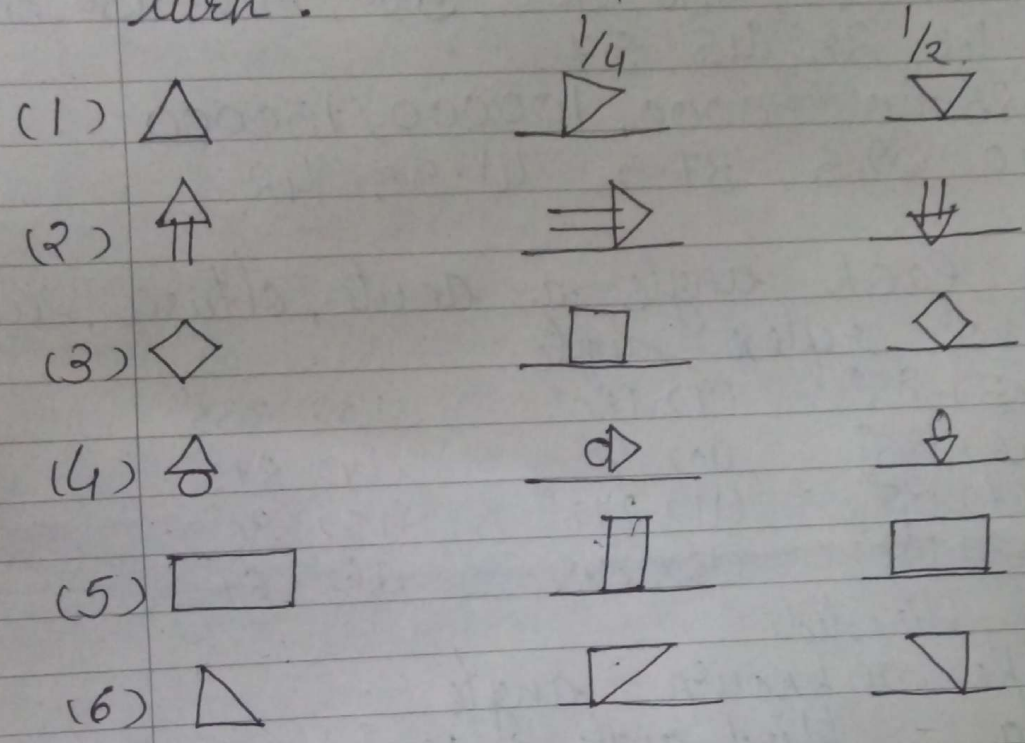 turn.
1/4 1/2
(1)
(2)
(3)
(4)
(5)
(6)